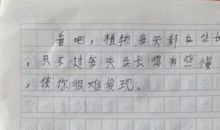 看吧，植物每天都在生长
，只不过每天生长得有些慢
，使你很难发现。